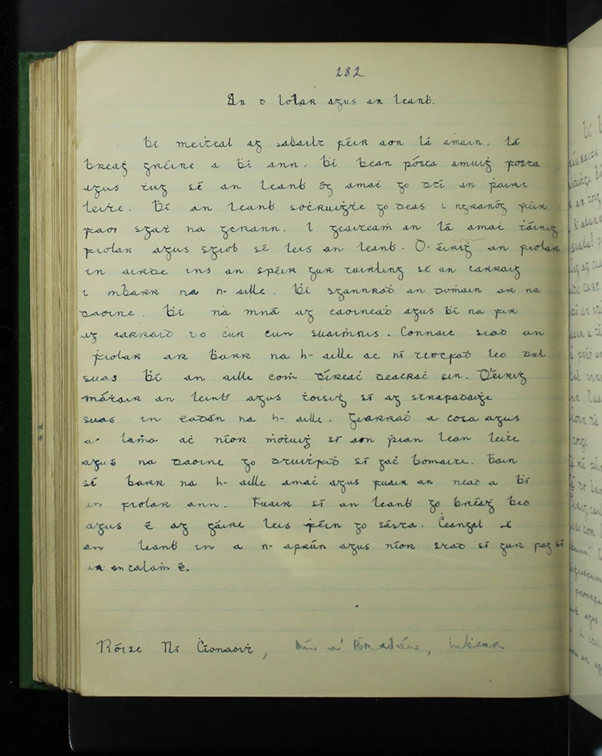 282
An t-Iolar agus an leanb.
Bí meiṫeal ag sábailt féir aon lá aṁáin. Lá
breaġ gréine a bí ann. Bí bean pósta amuiġ
agus ṫug sé an leanb óg amaċ go dtí an páirc
léite. Bí an leanb socruiġṫe go deas i ngranóg féir
faoi sgáṫ na gcrann. I gcaiṫeaṁ an lá amaċ ṫáiniġ
fiolar agus sgiob sé leis an leanb. D'éiriġ an fiolar
in áirde ins an spéir gur ṫuirling sé an carraig
i mbarr na h-aille. Bí sgannraḋ an doṁain ar na
daoine. Bí na mná ag caoineaḋ agus bí na fir
ag iarraiḋ iad ċur ċun suaiṁnis. Connaic siad an
fiolar ar ḃarr na h-aille aċ ní ṫiocfaḋ leo dul
suas bí an aille coṁ díreaċ deacraċ sin. D'éiriġ
máṫair an leinḃ agus ṫoisiġ sí ag strapadaiġe
suas in éadán na h-aille. Gearraḋ a cosa agus
a láṁa aċ níor ṁoṫuiġ sí aon ṗian lean léiṫe
agus na daoine go dtuitfeaḋ sí gaċ bomaite. Bain
sí barr na h-aille amaċ agus fuair an nead a bí
fiolar ann. Fuair sí an leanb go breáġ beo
agus é ag gáire leis féin go sásta. Ċeangal sí
an leanb in a n-aprún agus níor stad sí gur fág sí
ar an talaṁ é.
Róise Ní Ċionaoiṫ,